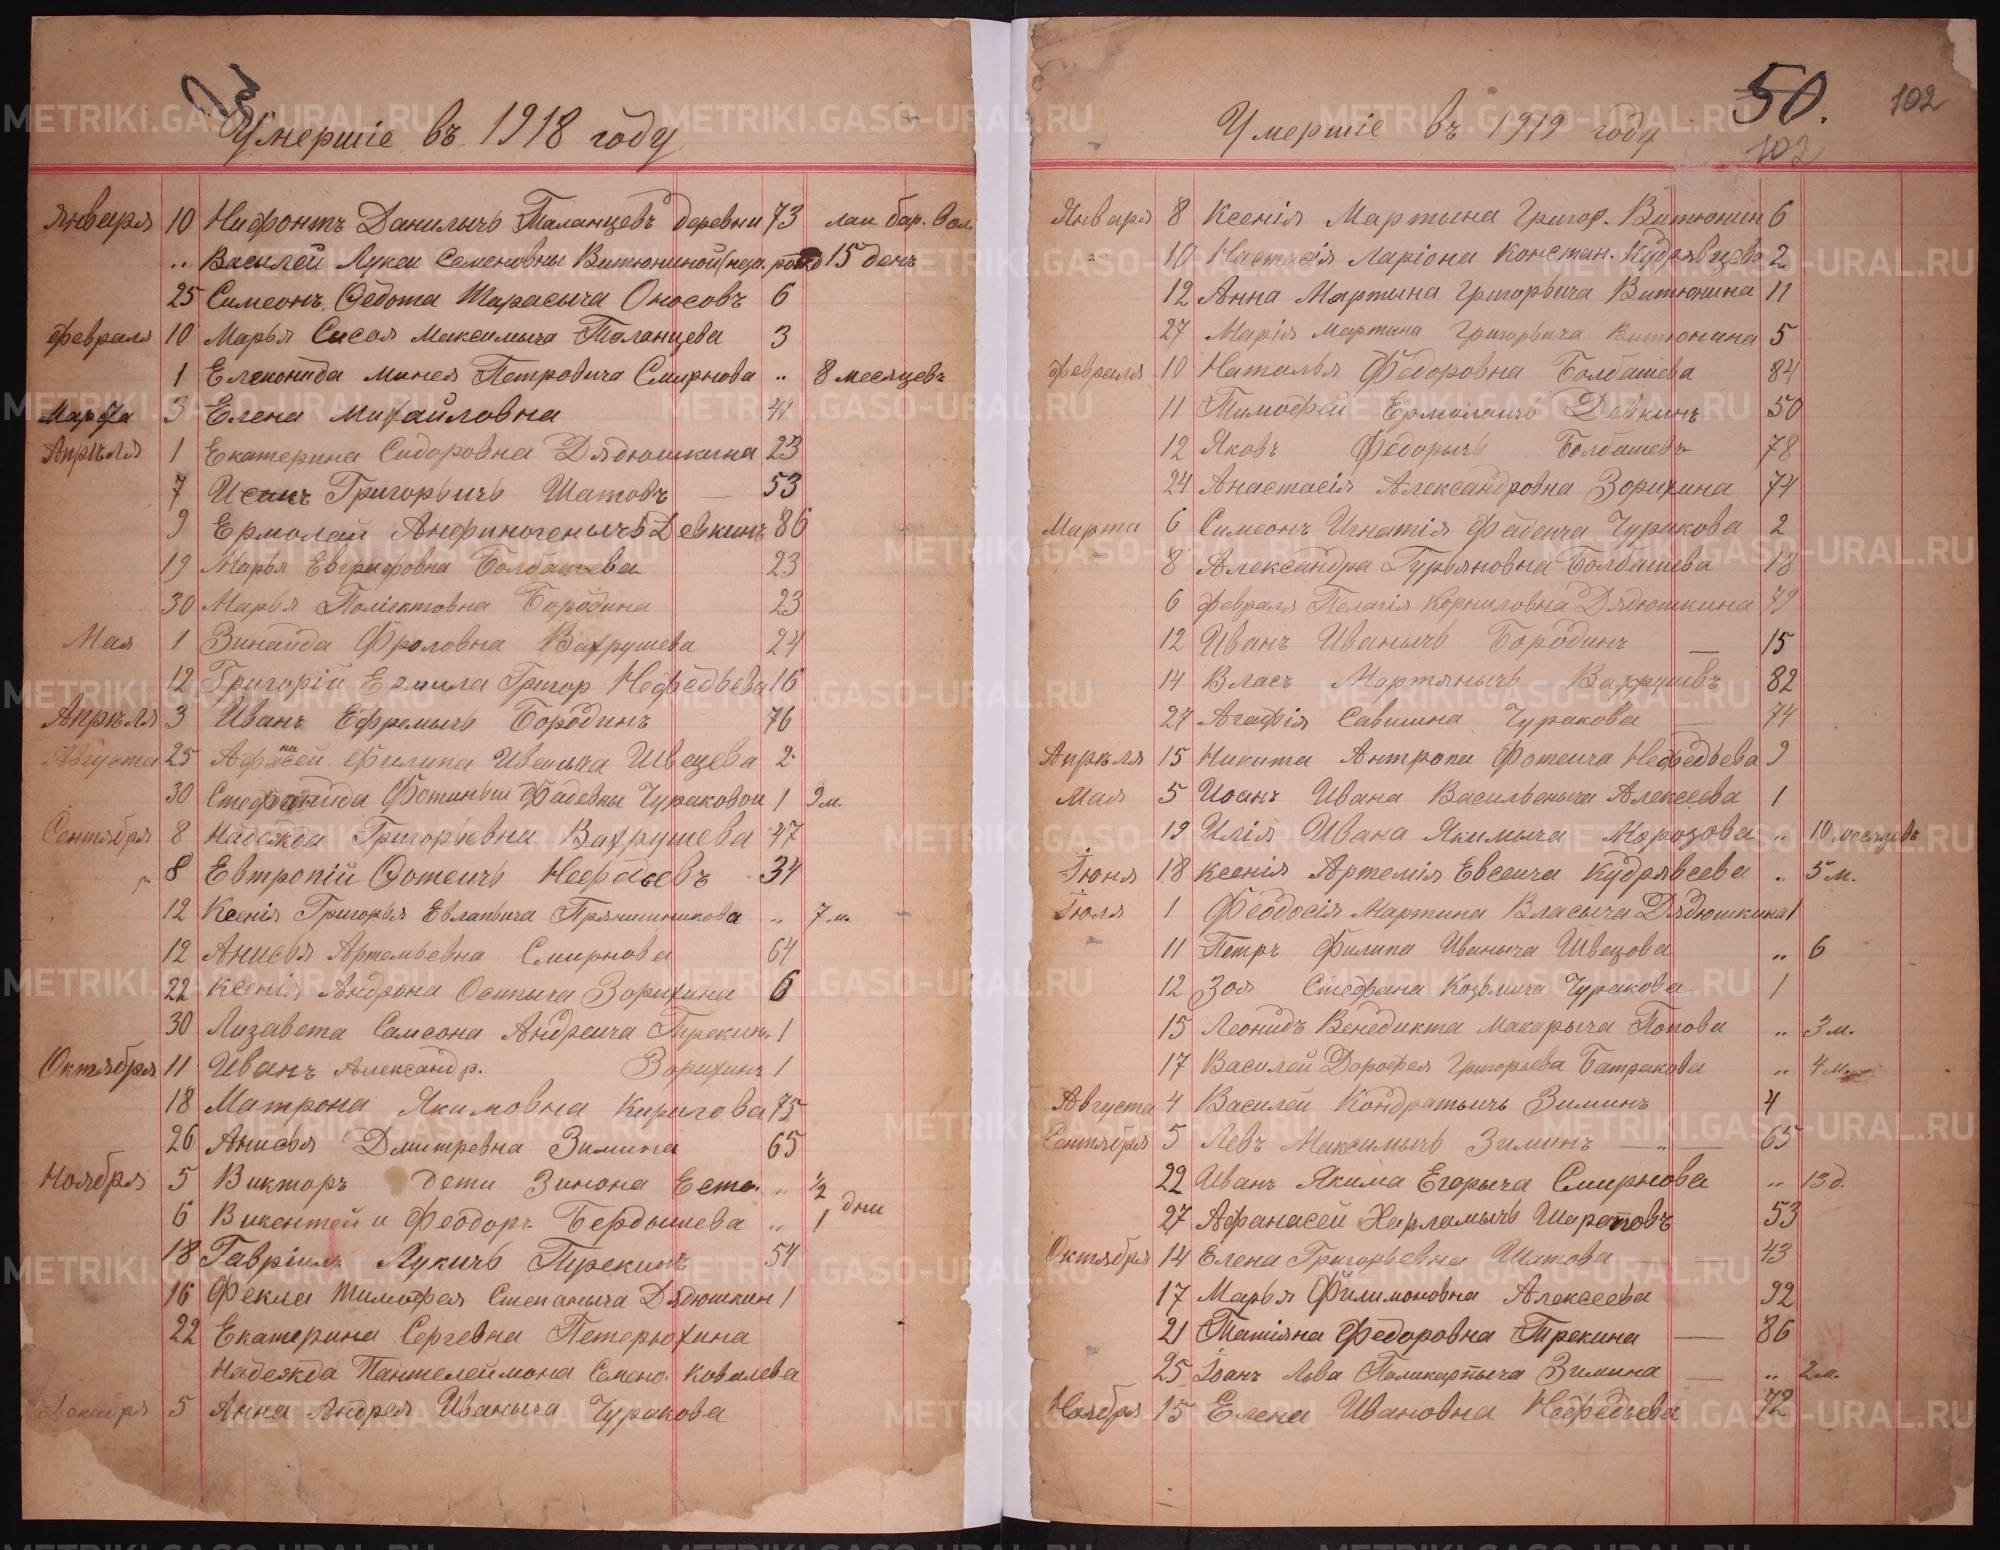 Умершіе въ 1918 году
Января 10 Нифонтъ Данилычъ Таланцевъ деревни 73
" Василей Лукеи Семеновны Витюниной 15 день
25 Симеонъ Федота Тарасыча Оносовъ 6
Февраля 10 Марья Сысоя Максимыча Таланцева 3
1 Елеконида Минея Петровича Смирнова " 8 месяцевъ
Марта 3 Елена Михайловна 41
Апрѣля 1 Екатерина Сидоровна Дядюшкина 23
7 Исакъ Григорьичъ Шатовъ 53
9 Ермолай Анфиногенычъ Девкинъ 86
19 Марья Евграфовна Болдашева 23
30 Марья Поліектовна Бородина 23
Мая 1 Зинаида Фроловна Вахрушева 24
12 Григорій Ермила Григор Нефедьева 16
Апрѣля 3 Иванъ Ефремычъ Бородинъ 76
Августа 25 Афанасей Филипа Иваныча Швецева 2
30 Стефанида Фотиньи Фадевны Чураковой 1 9 м.
Сентября 8 Надежда Григорьевна Вахрушева 47
8 Евтропій Фотеичъ Нефедьевъ 34
12 Ксенія Григорья Евлапьича Прянишникова " 7 м.
12 Анисья Артемьевна Смирнова 64
22 Ксенія Андрона Осипыча Зорихина 6
30 Лизавета Самсона Андреича Трекинъ 1
Октября 11 Иванъ Александр. Зорихинъ 1
18 Матрона Якимовна Киригова 75
26 Анисья Дмитревна Зимина 65
Ноября 5 Викторъ дети Зинона Есто. " ½
6 Викентей и Феодоръ Бердышева " 1 дни
18 Гавріилъ Лукичъ Трекинъ 54
16 Фекла Тимофея Степаныча Дядюшкин 1
22 Екатерина Сергевна Петерюхина
Надежда Пантелеймона Семено. Ковалева
Декабря 5 Анна Андрея Иваныча Чуракова
50.
102
102
Умершіе въ 1919 году
Января 8 Ксенія Мартына Григор. Витюнин 6
" 10 Настасія Ларіона Констан. Кудрявцева 2
12 Анна Мартина Григорьича Витюнина 11
27 Марія Мартина Григорьича Витюнина 5
Февраля 10 Наталья Федоровна Болдашева 84
11 Тимофей Ермолаичъ Девкинъ 50
12 Яковъ Федорычъ Болдашевъ 78
24 Анастасія Александровна Зорихина 74
Марта 6 Симеонъ Игнатія Фадеича Чуракова 2
8 Александра Гурьяновна Болдашева 18
6 февраля Пелагія Корниловна Дядюшкина 79
12 Иванъ Иванычъ Бородинъ — 15
14 Власъ Мартянычъ Вахрушевъ 82
27 Агафія Савишна Чуракова — 74
Апрѣля 15 Никита Антропа Фотеича Нефедьева 9
Мая 5 Иоанъ Ивана Васильевича Алексеева 1
19 Илія Ивана Якимыча Морозова " 10 месяцевъ
Іюня 18 Ксенія Артемія Евсеича Кудрявсева " 5 м.
Іюля 1 Феодосія Мартина Власыча Дядюшкина 1
11 Петръ Филипа Иваныча Швецова " 6
12 Зоя Стефана Козьмича Чуракова 1
15 Леонидъ Венедикта Макарыча Попова " 3 м.
17 Василей Дорофея Григорьева Батракова " 4 м.
Августа 4 Василей Кондратьичъ Зиминъ 4
Сентября 5 Левъ Максимычъ Зиминъ — " — 65
22 Иванъ Якима Егорыча Смирнова " 13 д.
27 Афанасей Харламычъ Шараповъ 53
Октября 14 Елена Григорьевна Шатова — 43
17 Марья Филимоновна Алексеева 92
21 Татіяна Федоровна Трекина — 86
25 Іоанъ Льва Поликарпыча Зимина — " 2 м.
Ноября 15 Елена Ивановна Нефедьева 72